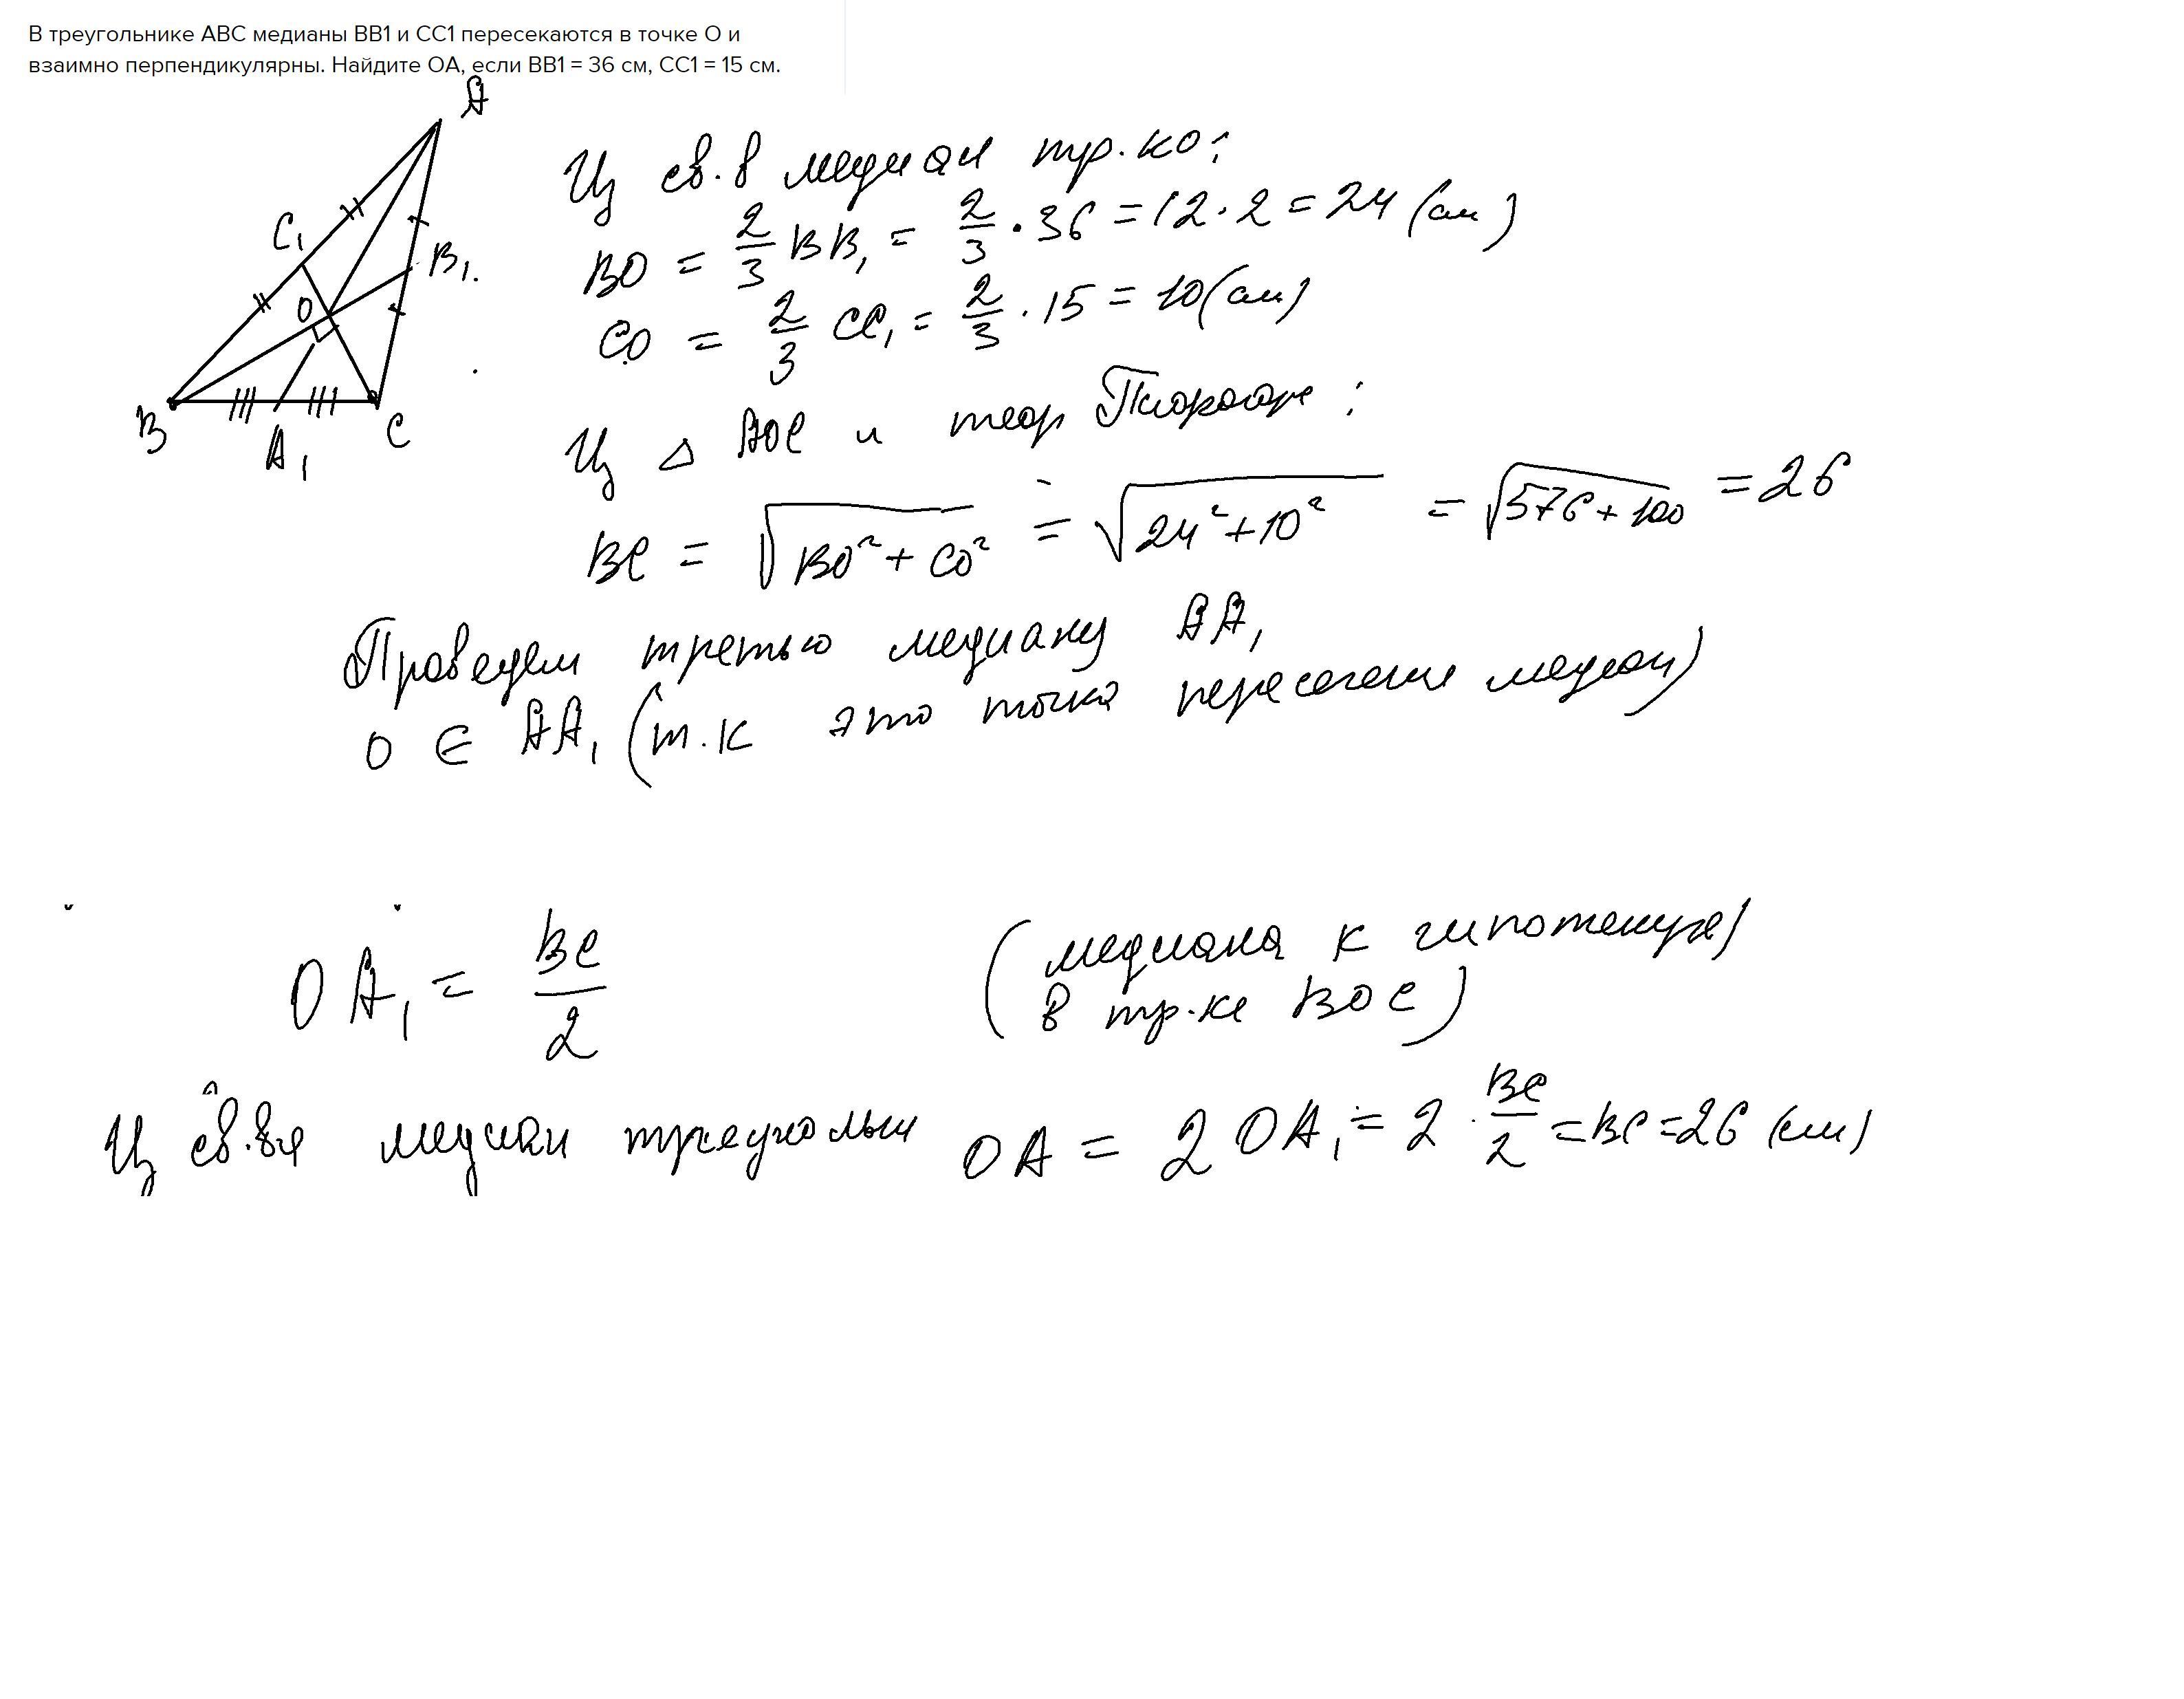 В треугольнике ABC медианы BB1 и CC1 пересекаются в точке O и
взаимно перпендикулярны. Найдите OA, если BB1 = 36 см, CC1 = 15 см.
A
C₁
B₁
O
B
A₁
C
Из св.в медиан тр.ка:
BO = 2/3 BB₁ = 2/3 · 36 = 12 · 2 = 24 (см)
CO = 2/3 CC₁ = 2/3 · 15 = 10 (см)
Из △ BOC и теор Пифагора:
BC = √(BO² + CO²) = √(24² + 10²) = √(576 + 100) = 26
Проведем третью медиану AA₁
O ∈ AA₁ (т.к это точка пересечения медиан)
OA₁ = BC/2 (медиана к гипотенузе
в тр.ке BOC)
Из св.вa медиан OA = 2 OA₁ = 2 · BC/2 = BC = 26 (см)